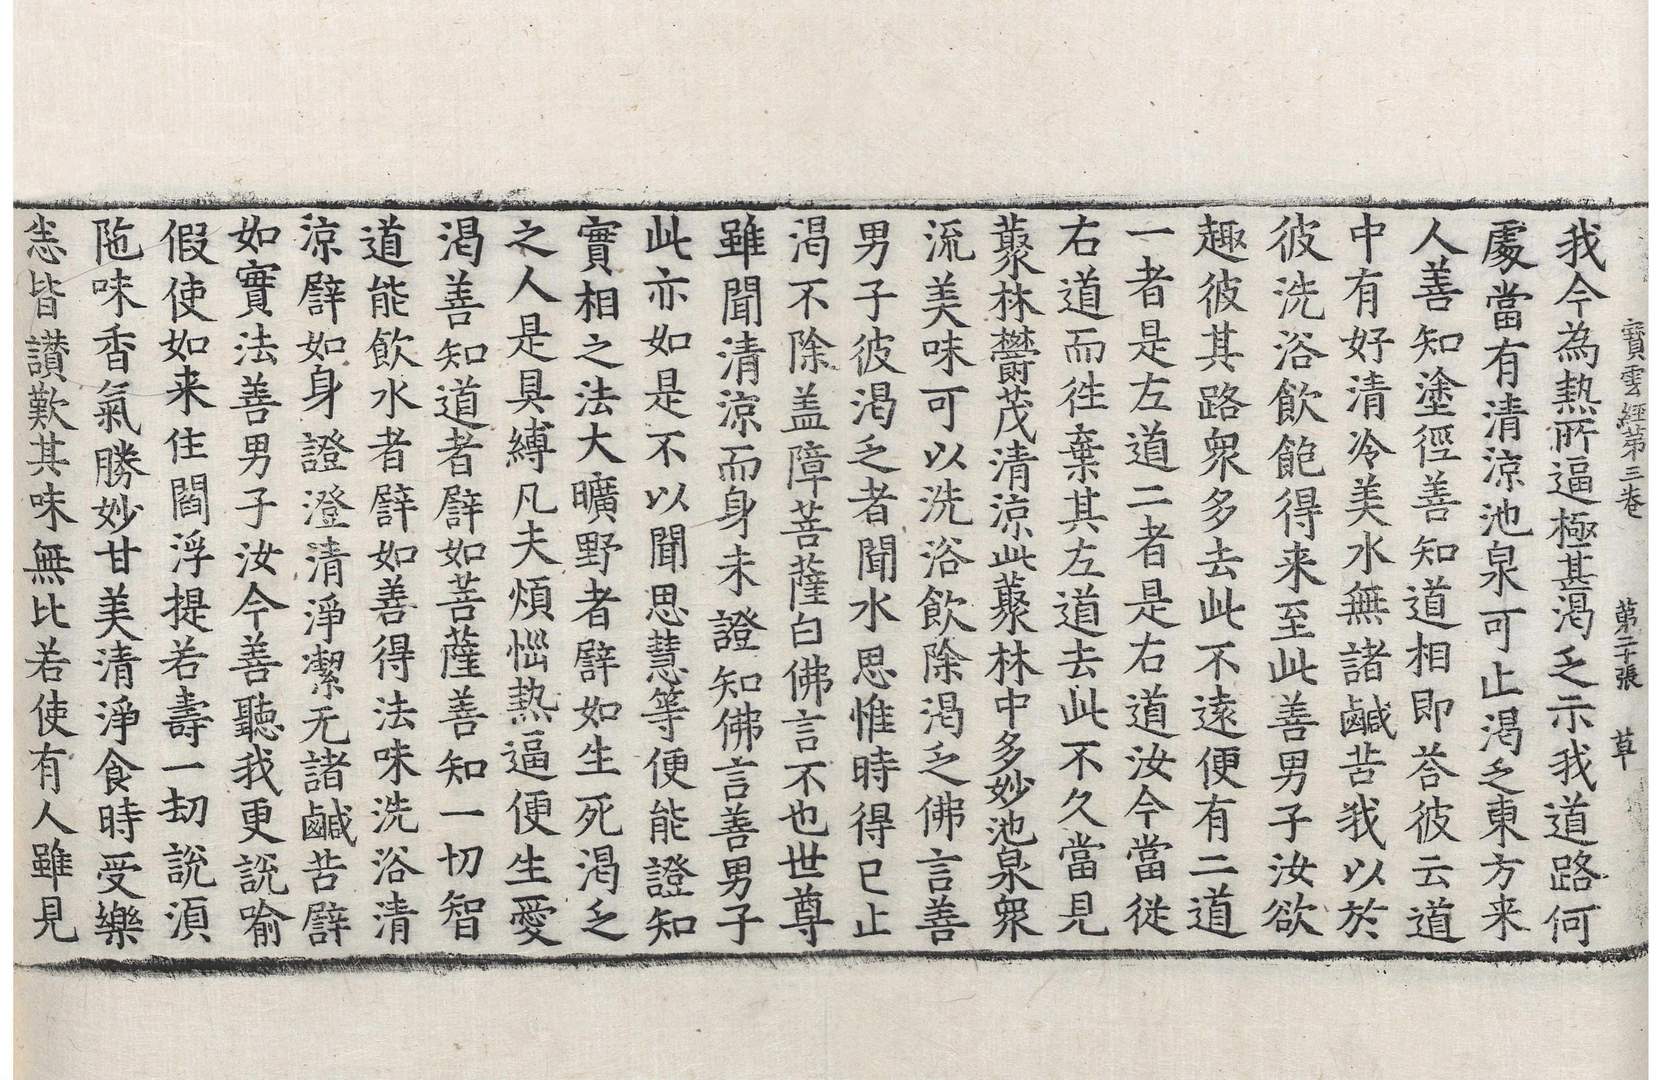 寶雲經第三卷　第二十張　草
我今為熱所逼極甚渴乏示我道路何
處當有清涼池泉可止渴乏東方来
人善知塗徑善知道相即荅彼云道
中有好清冷美水無諸鹹苦我以於
彼洗浴飲飽得来至此善男子汝欲
趣彼其路衆多去此不遠便有二道
一者是左道二者是右道汝今當從
右道而徃棄其左道去此不久當見
藂林欝茂清涼此藂林中多妙池泉衆
流美味可以洗浴飲除渴乏佛言善
男子彼渴乏者聞水思惟時得已止
渴不除盖障菩薩白佛言不也世尊
雖聞清涼而身未證知佛言善男子
此亦如是不以聞思慧等便能證知
實相之法大曠野者譬如生死渴乏
之人是具縛凡夫煩惱熱逼便生愛
渴善知道者譬如菩薩善知一切智
道能飲水者譬如善得法味洗浴清
涼譬如身證澄清淨潔无諸鹹苦譬
如實法善男子汝今善聽我更說喻
假使如来住閻浮提若壽一劫說湏
陁味香氣勝妙甘美清淨食時受樂
悉皆讃歎其味無比若使有人雖見